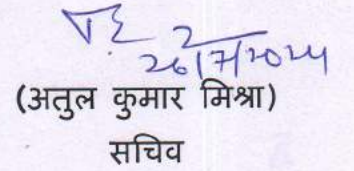 26/7/2024
(अतुल कुमार मिश्रा)
सचिव